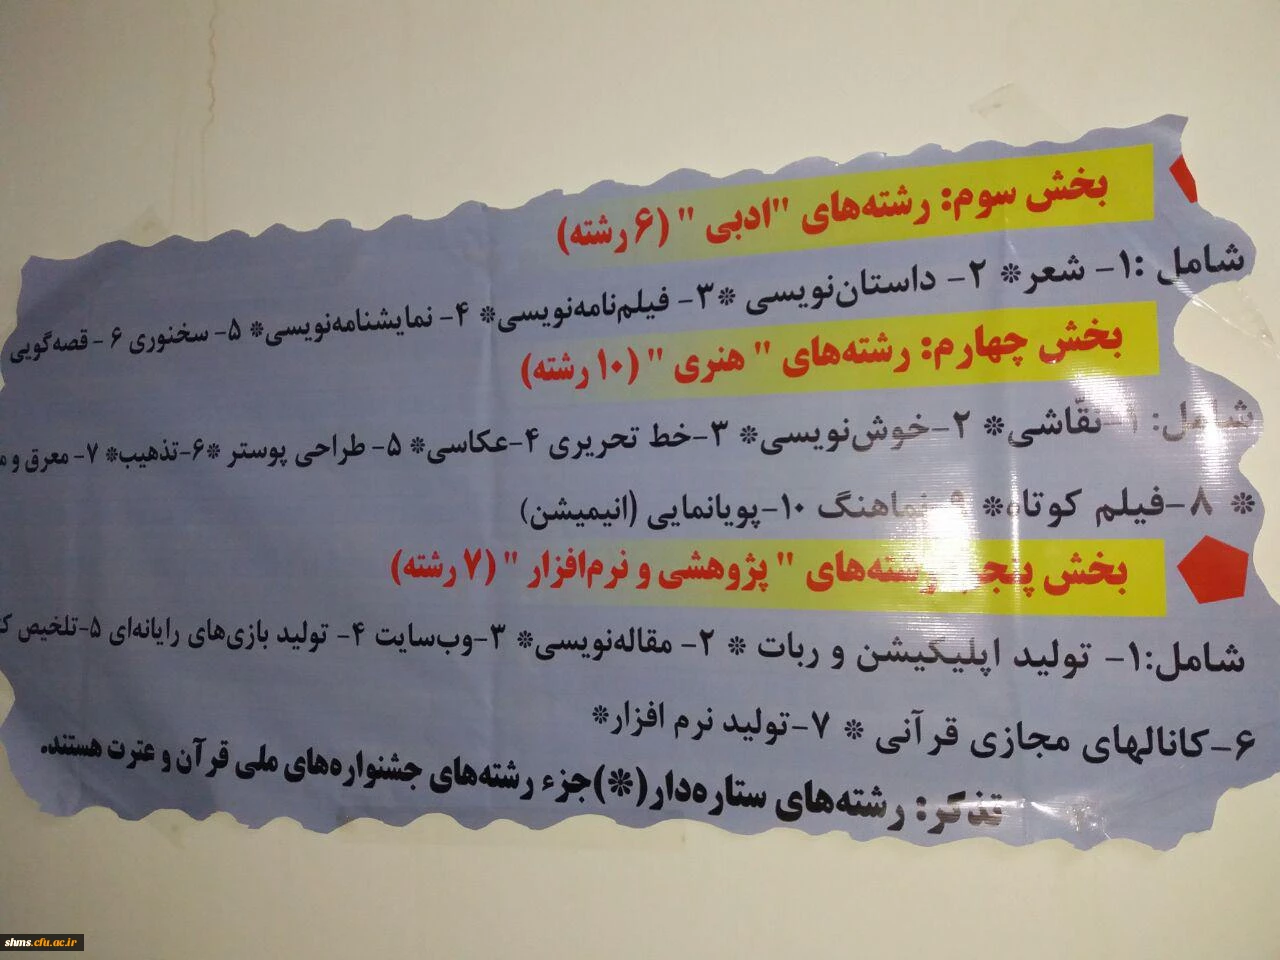 بخش سوم: رشته‌های "ادبی " (۶ رشته)
شامل :۱- شعر* ۲- داستان‌نویسی *۳- فیلم‌نامه‌نویسی* ۴- نمایشنامه‌نویسی* ۵- سخنوری ۶ - قصه‌گویی
بخش چهارم: رشته‌های " هنری " (۱۰ رشته)
شامل: ۱-نقّاشی* ۲-خوش‌نویسی* ۳-خط تحریری ۴-عکاسی* ۵- طراحی پوستر *۶-تذهیب* ۷- معرق و
* ۸-فیلم کوتاه* ۹-نماهنگ ۱۰-پویانمایی (انیمیشن)
بخش پنجم: رشته‌های " پژوهشی و نرم‌افزار " (۷ رشته)
شامل:۱- تولید اپلیکیشن و ربات * ۲- مقاله‌نویسی* ۳-وب‌سایت ۴- تولید بازی‌های رایانه‌ای ۵-تلخیص
۶-کانالهای مجازی قرآنی * ۷-تولید نرم افزار*
تذکر: رشته‌های ستاره‌دار(*)جزء رشته‌های جشنواره‌های ملی قرآن و عترت هستند.
shms.cfu.ac.ir